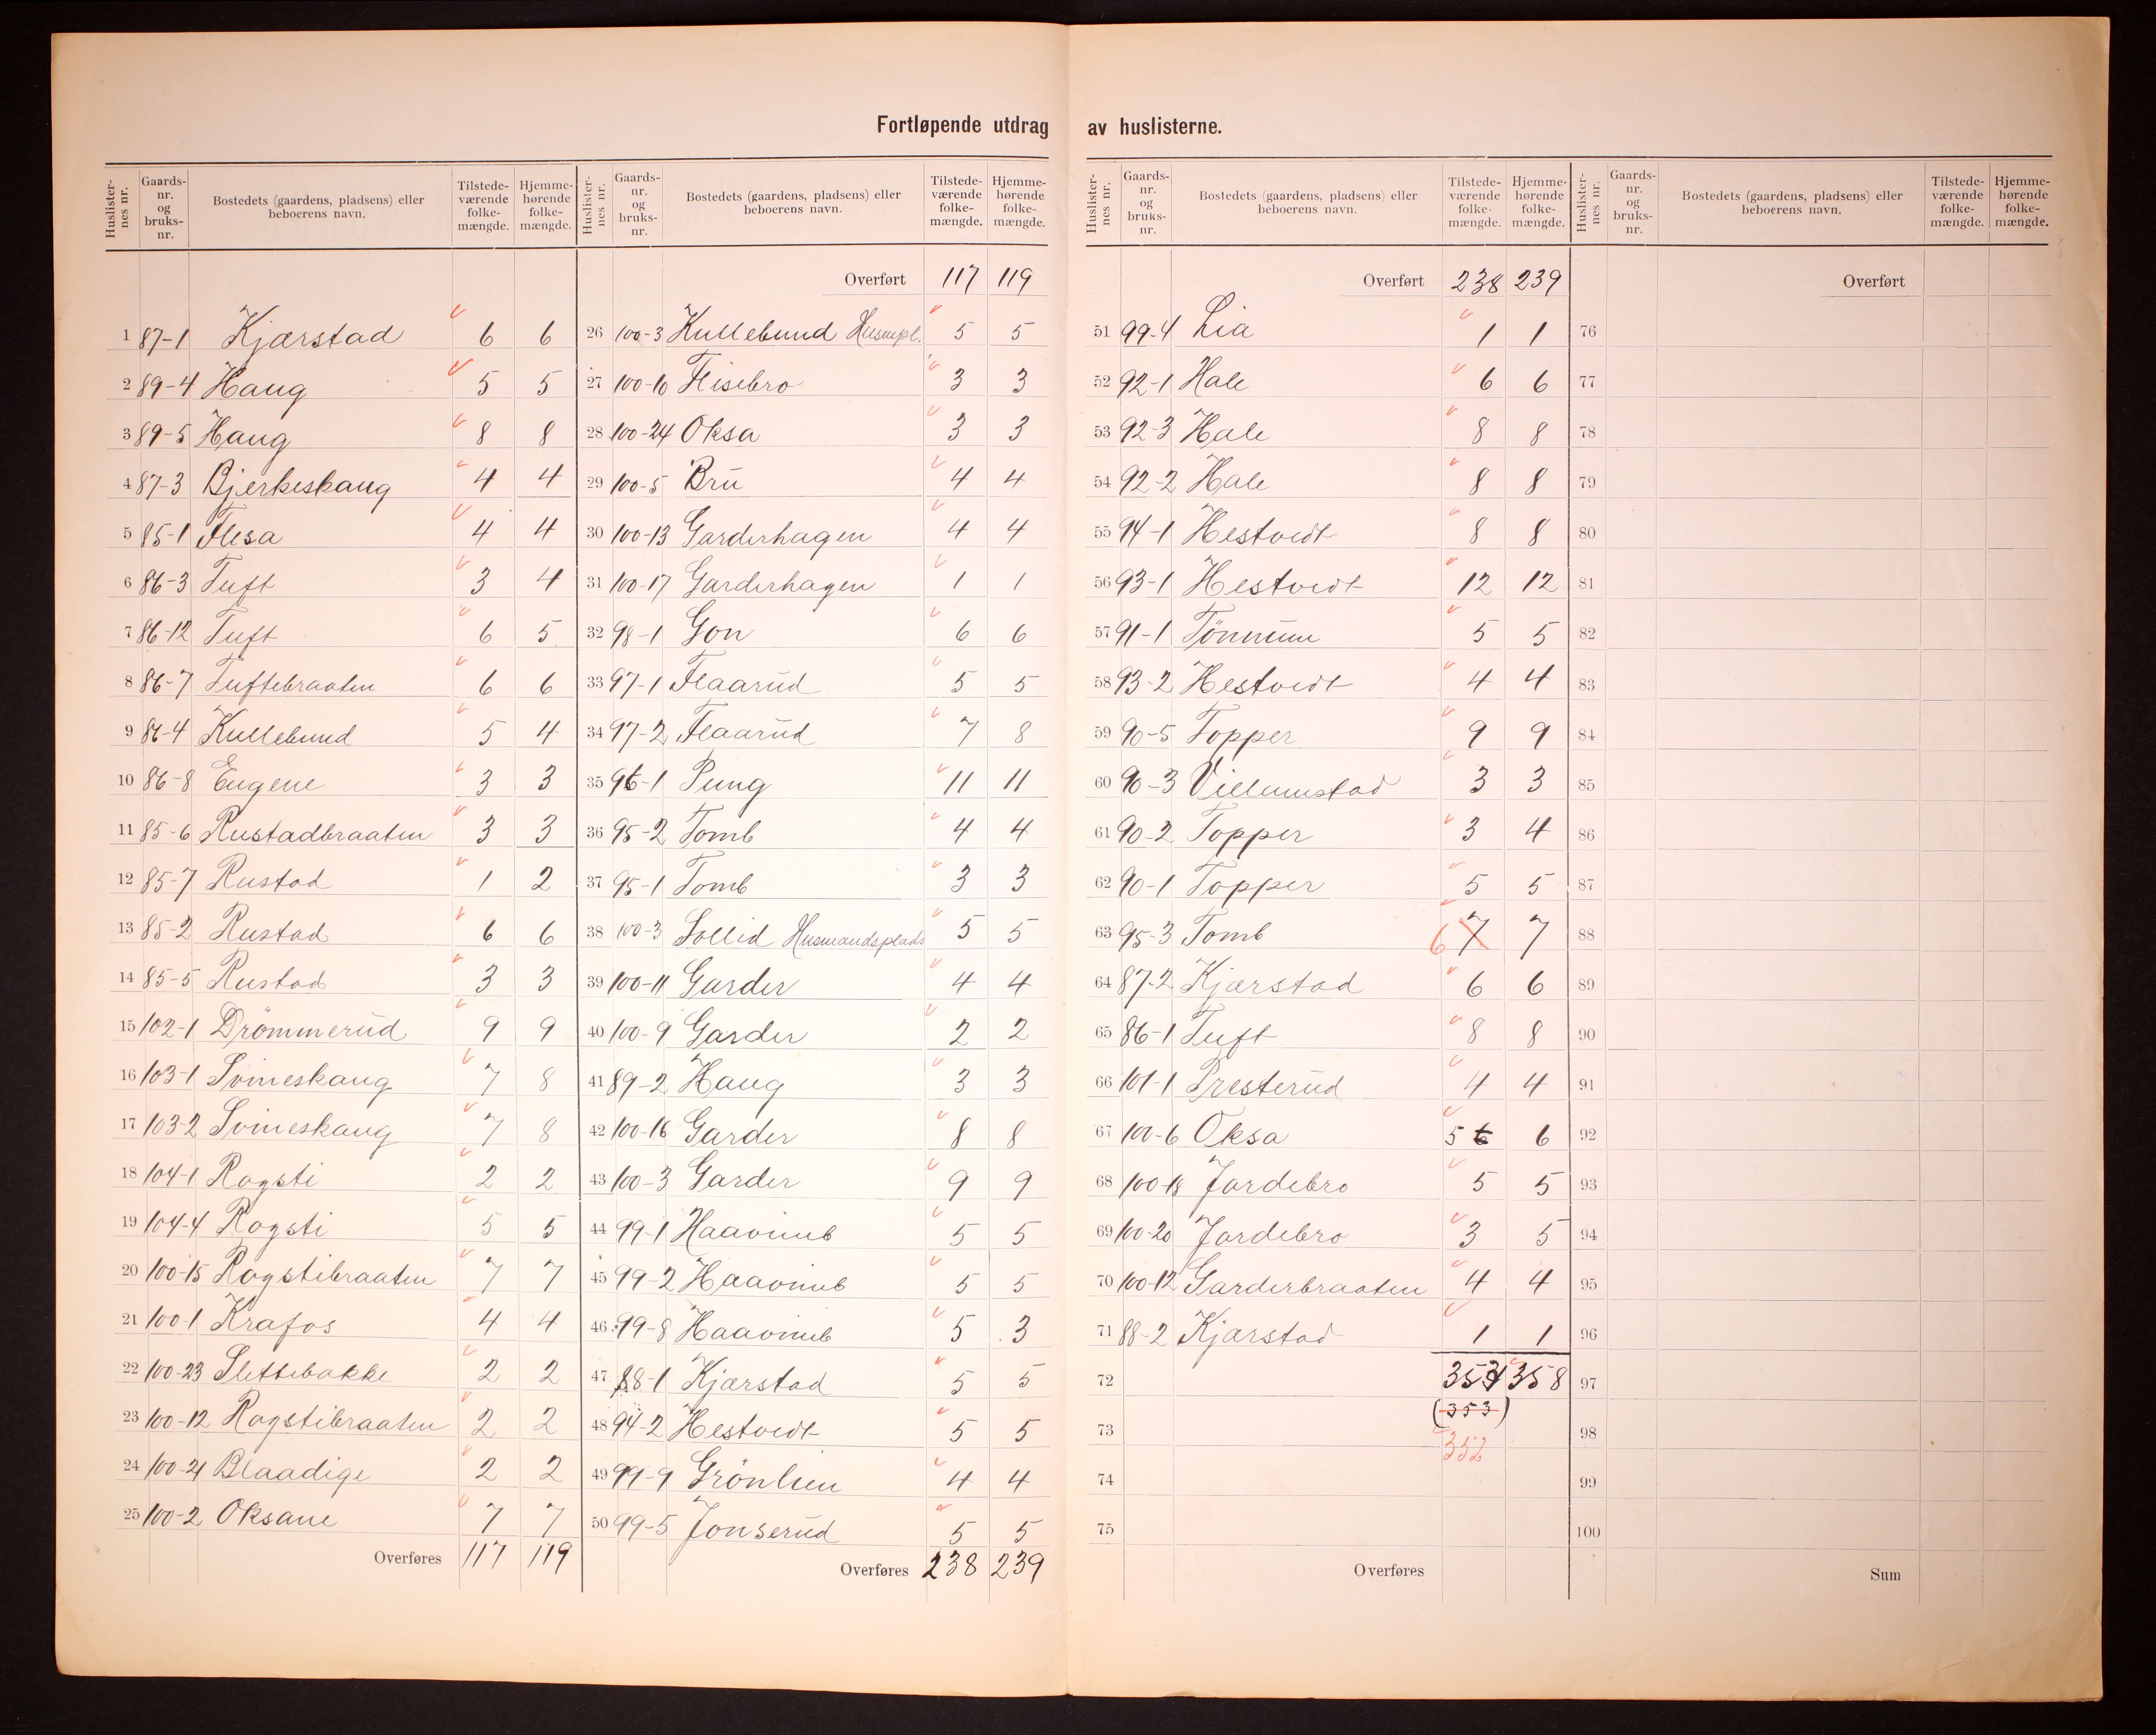 Fortløpende utdrag av huslisterne.
Huslister-nes nr. | Gaards-nr. og bruks-nr. | Bostedets (gaardens, pladsens) eller beboerens navn. | Tilstede-værende folke-mængde. | Hjemme-hørende folke-mængde.
1 87-1 Kjærstad 6 6
2 89-4 Haug 5 5
3 89-5 Haug 8 8
4 87-3 Bjerkeskaug 4 4
5 85-1 Flesa 4 4
6 86-3 Tuft 3 4
7 86-12 Tuft 6 5
8 86-7 Tuftebraaten 6 6
9 86-4 Kullebund 5 4
10 86-8 Eugene 3 3
11 85-6 Rustadbraaten 3 3
12 85-7 Rustad 1 2
13 85-2 Rustad 6 6
14 85-5 Rustad 3 3
15 102-1 Drömmerud 9 9
16 103-1 Svineskaug 7 8
17 103-2 Svineskaug 7 8
18 104-1 Rogsti 2 2
19 104-4 Rogsti 5 5
20 100-15 Rogstibraaten 7 7
21 100-1 Krafos 4 4
22 100-23 Slettebakke 2 2
23 100-12 Rogstibraaten 2 2
24 100-21 Blaadige 2 2
25 100-2 Oksane 7 7
Overføres 117 119
Huslister-nes nr. | Gaards-nr. og bruks-nr. | Bostedets (gaardens, pladsens) eller beboerens navn. | Tilstede-værende folke-mængde. | Hjemme-hørende folke-mængde.
Overført 117 119
26 100-3 Kullebund Husmpl. 5 5
27 100-10 Flisebro 3 3
28 100-24 Oksa 3 3
29 100-5 Bru 4 4
30 100-13 Garderhagen 4 4
31 100-17 Garderhagen 1 1
32 98-1 Gon 6 6
33 97-1 Flaarud 5 5
34 97-2 Flaarud 7 8
35 96-1 Pung 11 11
36 95-2 Tomb 4 4
37 95-1 Tomb 3 3
38 100-3 Sollid Husmandsplads 5 5
39 100-11 Garder 4 4
40 100-9 Garder 2 2
41 89-2 Haug 3 3
42 100-16 Garder 8 8
43 100-3 Garder 9 9
44 99-1 Haavimb 5 5
45 99-2 Haavimb 5 5
46 99-8 Haavimb 5 3
47 88-1 Kjærstad 5 5
48 94-2 Hestvedt 5 5
49 99-9 Grönlien 4 4
50 99-5 Jonserud 5 5
Overføres 238 239
Huslister-nes nr. | Gaards-nr. og bruks-nr. | Bostedets (gaardens, pladsens) eller beboerens navn. | Tilstede-værende folke-mængde. | Hjemme-hørende folke-mængde.
Overført 238 239
51 99-4 Lia 1 1
52 92-1 Hale 6 6
53 92-3 Hale 8 8
54 92-2 Hale 8 8
55 94-1 Hestvedt 8 8
56 93-1 Hestvedt 12 12
57 91-1 Tönnum 5 5
58 93-2 Hestvedt 4 4
59 90-5 Topper 9 9
60 90-3 Villumstad 3 3
61 90-2 Topper 3 4
62 90-1 Topper 5 5
63 95-3 Tomb 6 7 7
64 87-2 Kjærstad 6 6
65 86-1 Tuft 8 8
66 101-1 Presterud 4 4
67 100-6 Oksa 5 6 6
68 100-18 Jordebro 5 5
69 100-20 Jordebro 3 5
70 100-12 Garderbraaten 4 4
71 88-2 Kjærstad 1 1
72 354 358
73 (353)
352
74
75
Overføres
Huslister-nes nr. | Gaards-nr. og bruks-nr. | Bostedets (gaardens, pladsens) eller beboerens navn. | Tilstede-værende folke-mængde. | Hjemme-hørende folke-mængde.
Overført
76
77
78
79
80
81
82
83
84
85
86
87
88
89
90
91
92
93
94
95
96
97
98
99
100
Sum